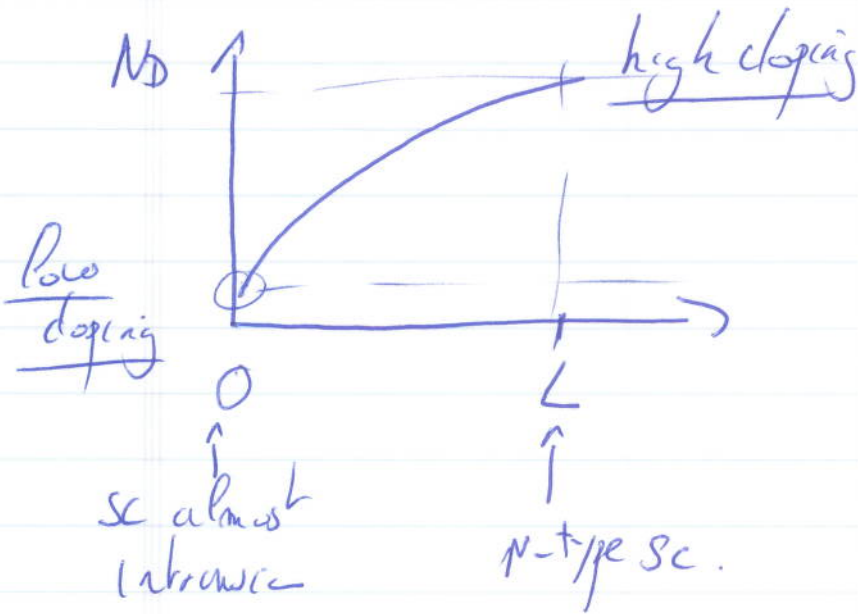 ND
high doping
low
doping
O
L
SC almost
Intrinsic
N-type SC.